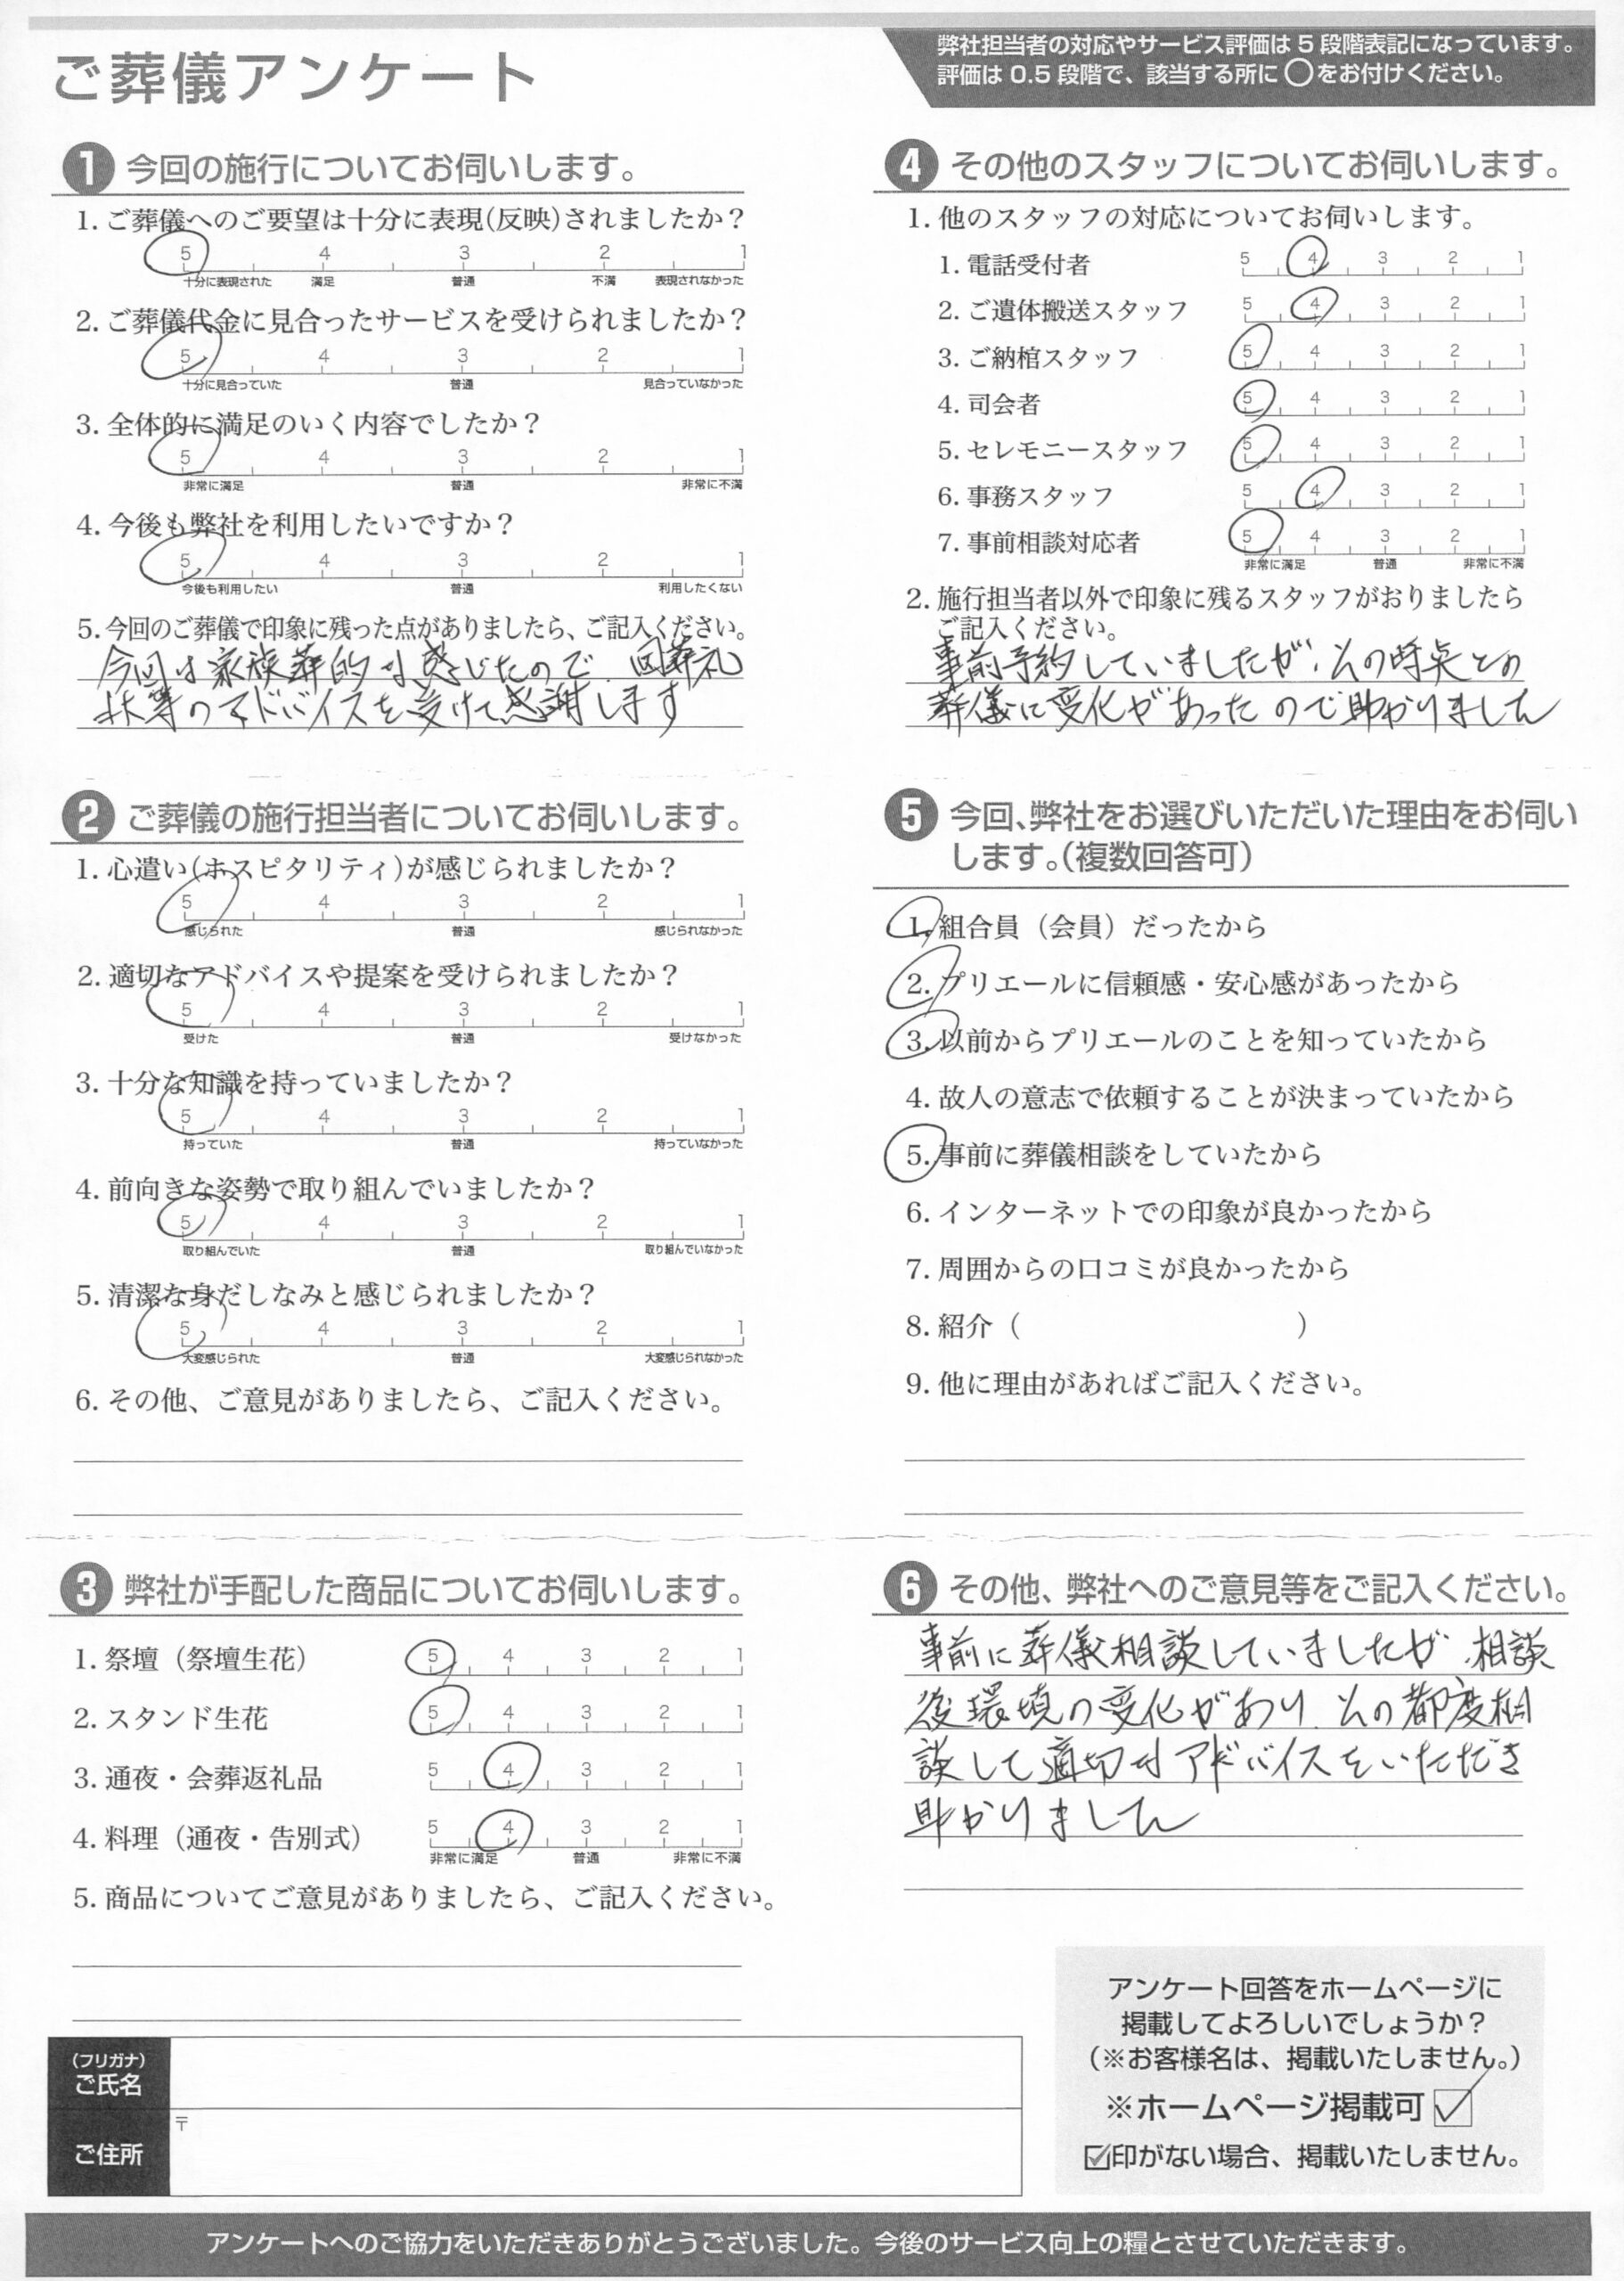 ご葬儀アンケート
弊社担当者の対応やサービス評価は5段階表記になっています。
評価は0.5段階で、該当する所に○をお付けください。
1 今回の施行についてお伺いします。
1. ご葬儀へのご要望は十分に表現(反映)されましたか？
5 4 3 2 1
十分に表現された 満足 普通 不満 表現されなかった
2. ご葬儀代金に見合ったサービスを受けられましたか？
5 4 3 2 1
十分に見合っていた 普通 見合っていなかった
3. 全体的に満足のいく内容でしたか？
5 4 3 2 1
非常に満足 普通 非常に不満
4. 今後も弊社を利用したいですか？
5 4 3 2 1
今後も利用したい 普通 利用したくない
5. 今回のご葬儀で印象に残った点がありましたら、ご記入ください。
今回は家族葬的な感じたので 回葬礼
状等のアドバイスを受けて感謝します
2 ご葬儀の施行担当者についてお伺いします。
1. 心遣い(ホスピタリティ)が感じられましたか？
5 4 3 2 1
感じられた 普通 感じられなかった
2. 適切なアドバイスや提案を受けられましたか？
5 4 3 2 1
受けた 普通 受けなかった
3. 十分な知識を持っていましたか？
5 4 3 2 1
持っていた 普通 持っていなかった
4. 前向きな姿勢で取り組んでいましたか？
5 4 3 2 1
取り組んでいた 普通 取り組んでいなかった
5. 清潔な身だしなみと感じられましたか？
5 4 3 2 1
大変感じられた 普通 大変感じられなかった
6. その他、ご意見がありましたら、ご記入ください。
3 弊社が手配した商品についてお伺いします。
1. 祭壇（祭壇生花） 5 4 3 2 1
2. スタンド生花 5 4 3 2 1
3. 通夜・会葬返礼品 5 4 3 2 1
4. 料理（通夜・告別式） 5 4 3 2 1
非常に満足 普通 非常に不満
5. 商品についてご意見がありましたら、ご記入ください。
4 その他のスタッフについてお伺いします。
1. 他のスタッフの対応についてお伺いします。
1. 電話受付者 5 4 3 2 1
2. ご遺体搬送スタッフ 5 4 3 2 1
3. ご納棺スタッフ 5 4 3 2 1
4. 司会者 5 4 3 2 1
5. セレモニースタッフ 5 4 3 2 1
6. 事務スタッフ 5 4 3 2 1
7. 事前相談対応者 5 4 3 2 1
非常に満足 普通 非常に不満
2. 施行担当者以外で印象に残るスタッフがおりましたら
ご記入ください。
事前予約していましたが、その時点との
葬儀に変化があったので助かりました
5 今回、弊社をお選びいただいた理由をお伺い
します。（複数回答可）
1. 組合員（会員）だったから
2. プリエールに信頼感・安心感があったから
3. 以前からプリエールのことを知っていたから
4. 故人の意志で依頼することが決まっていたから
5. 事前に葬儀相談をしていたから
6. インターネットでの印象が良かったから
7. 周囲からの口コミが良かったから
8. 紹介（ ）
9. 他に理由があればご記入ください。
6 その他、弊社へのご意見等をご記入ください。
事前に葬儀相談していましたが、相談
後環境の変化があり、その都度相
談して適切なアドバイスをいただき
助かりました
アンケート回答をホームページに
掲載してよろしいでしょうか？
（※お客様名は、掲載いたしません。）
※ホームページ掲載可 ☑
☑印がない場合、掲載いたしません。
（フリガナ）
ご氏名
〒
ご住所
アンケートへのご協力をいただきありがとうございました。今後のサービス向上の糧とさせていただきます。